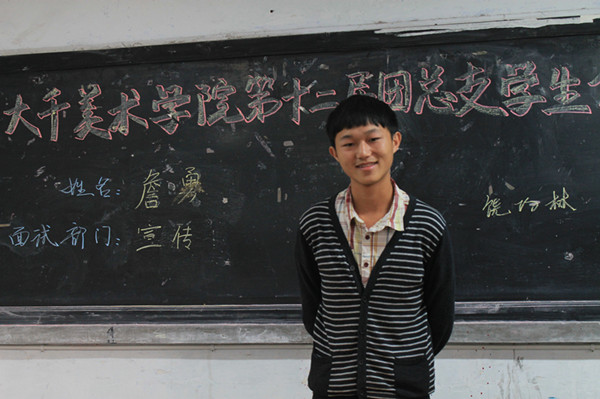 大千美术学院第十二届团总支学生
姓名：詹勇
饶培林
面试部门：宣传